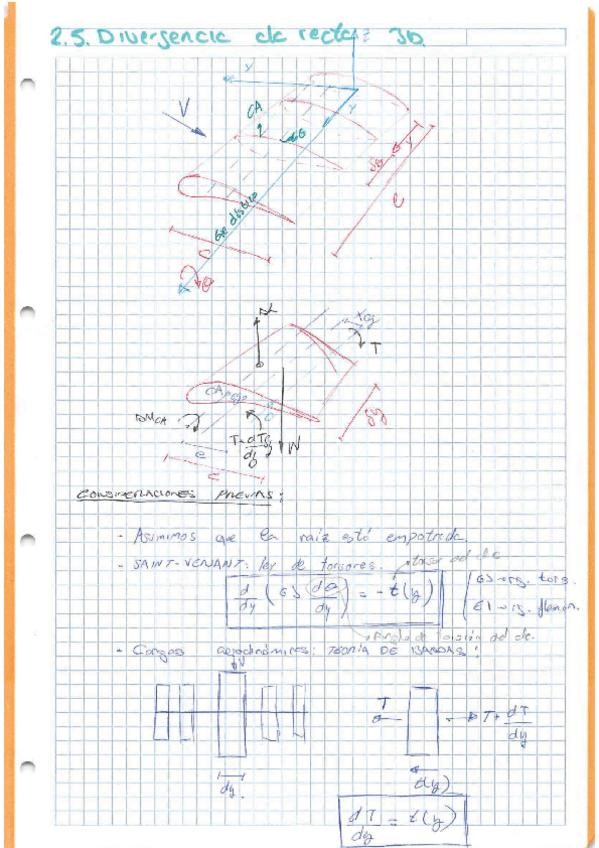 2.5. Divergencia ala recta: 3D.
y
V
CA
y
eje elástico
δy
y
l
c
θ
L
xcg
T
CA
eje
δMCA
e
c
T + dT/dy δy
W
δy
CONSIDERACIONES PREVIAS:
- Asumimos que la raíz está empotrada.
- SAINT-VENANT: ley de torsores.
torsor del ala
d/dy (GJ dθ/dy) = -t(y)
GJ → rig. tors.
EI → rig. flexión.
ángulo de torsión del ala.
- Cargas aerodinámicas: TEORÍA DE BANDAS:
dy
T
T + dT/dy
dy
dT/dy = t(y)